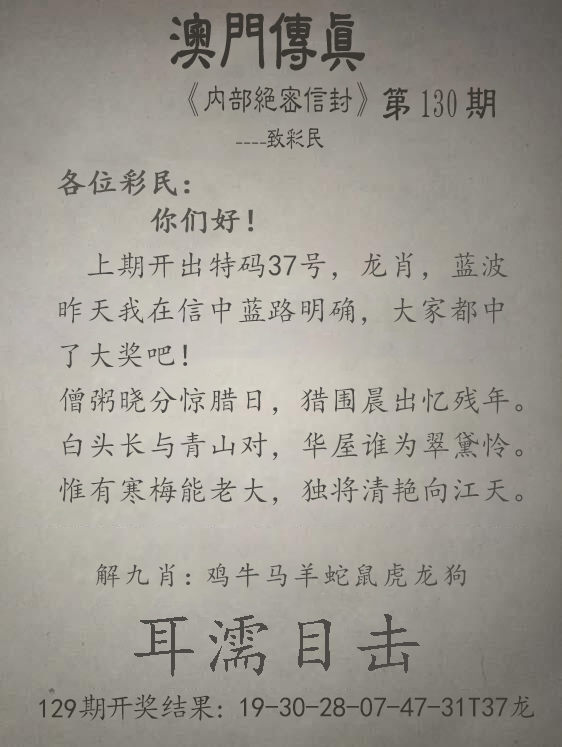 澳門傳眞
《内部絕密信封》第130期
----致彩民
各位彩民：
你们好！
上期开出特码37号，龙肖，蓝波
昨天我在信中蓝路明确，大家都中
了大奖吧！
僧粥晓分惊腊日，猎围晨出忆残年。
白头长与青山对，华屋谁为翠黛怜。
惟有寒梅能老大，独将清艳向江天。
解九肖：鸡牛马羊蛇鼠虎龙狗
耳濡目击
129期开奖结果：19-30-28-07-47-31T37龙